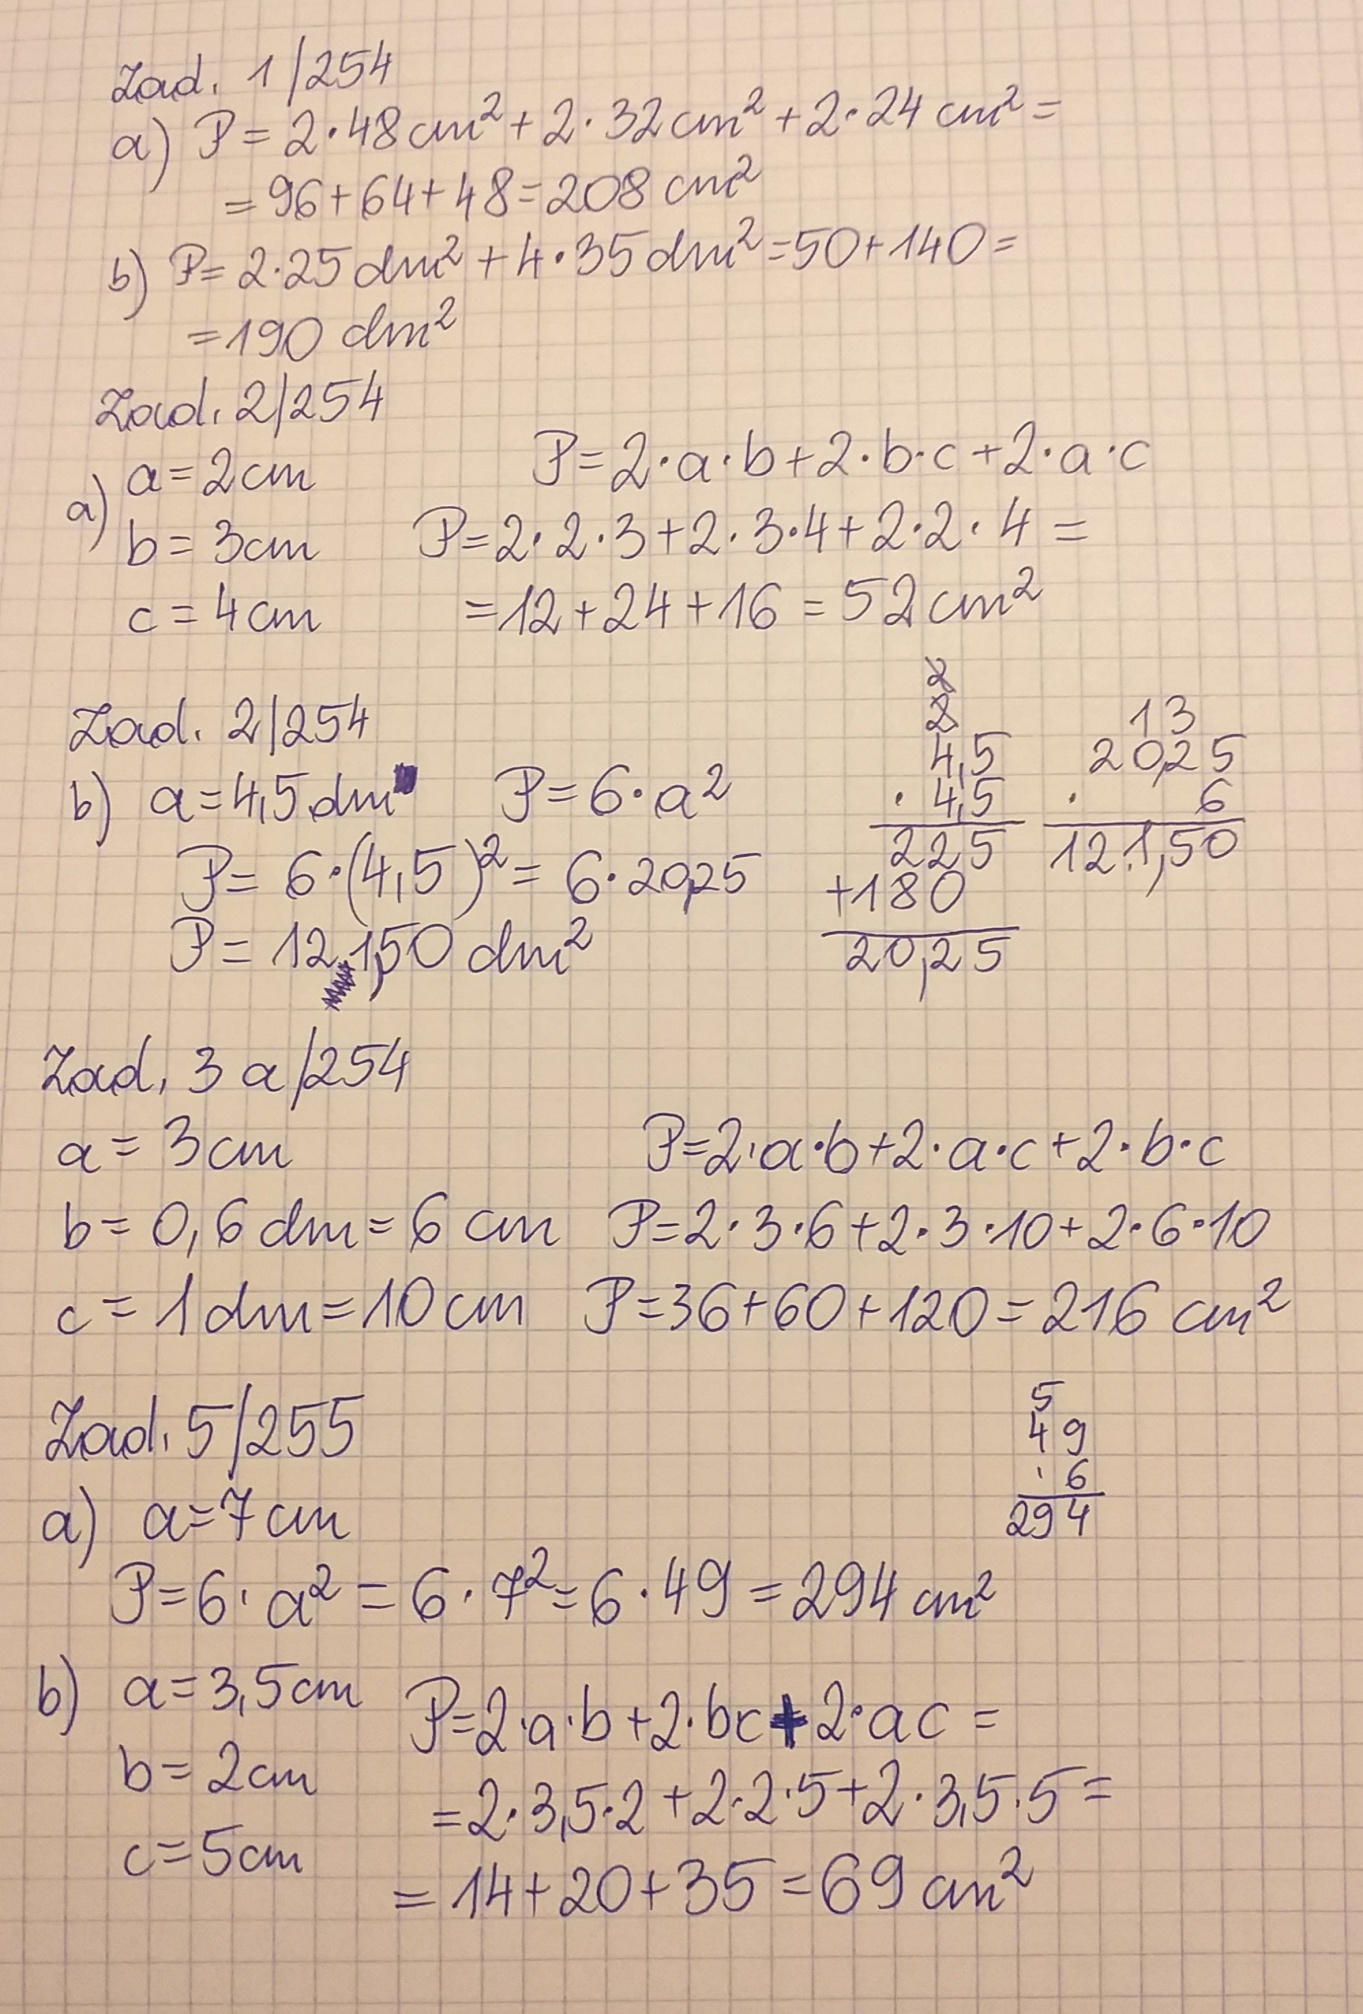 Zad. 1/254
a) P = 2·48cm² + 2·32cm² + 2·24cm² =
= 96+64+48=208 cm²
b) P= 2·25dm² + 4·35dm²=50+140=
=190 dm²
Zad. 2/254
a) a=2cm
b= 3cm
c=4cm
P=2·a·b+2·b·c+2·a·c
P=2·2·3+2·3·4+2·2·4 =
=12+24+16=52cm²
Zad. 2/254
b) a=4,5dm P=6·a²
P= 6·(4,5)²= 6·20,25
P= 121,50 dm²
2
2
4,5
· 4,5
225
+180
20,25
13
20,25
· 6
121,50
Zad. 3a/254
a= 3cm
b= 0,6dm=6 cm
c=1dm=10cm
P=2·a·b+2·a·c+2·b·c
P=2·3·6+2·3·10+2·6·10
P=36+60+120=216 cm²
Zad. 5/255
a) a=7cm
5
49
· 6
294
P=6·a²=6·7²=6·49=294cm²
b) a=3,5cm
b=2cm
c=5cm
P=2·a·b+2·bc+2·ac=
=2·3,5·2+2·2·5+2·3,5·5=
=14+20+35=69cm²